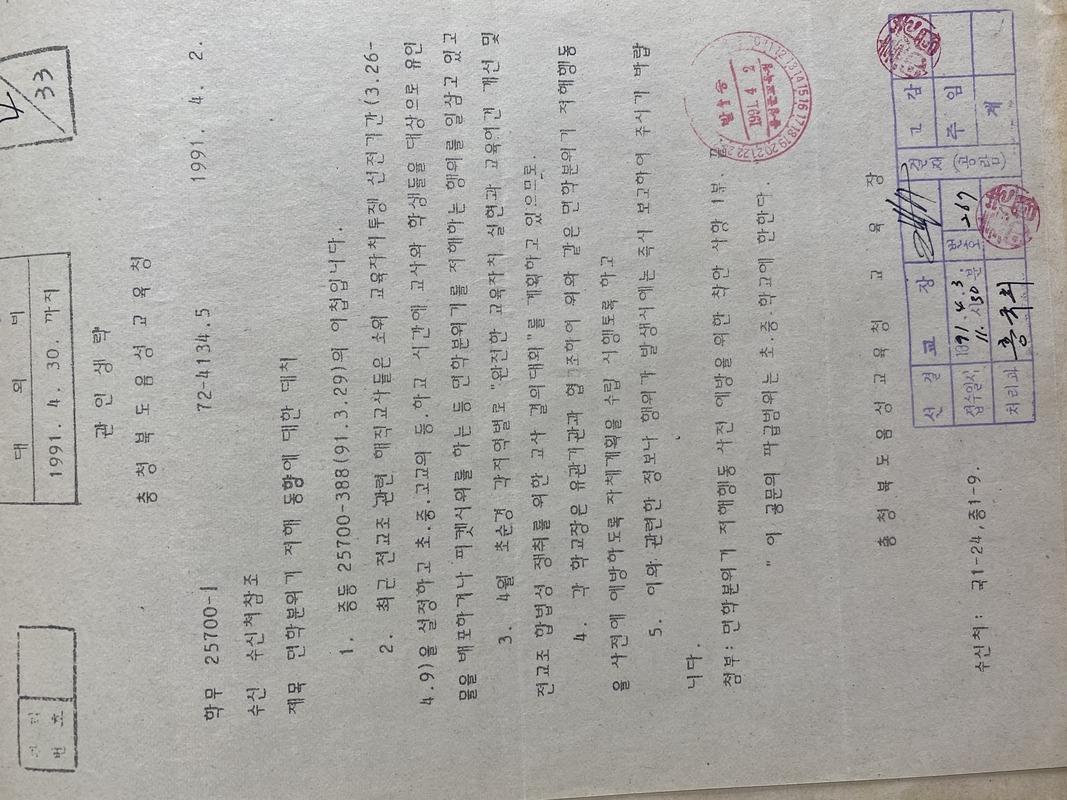 33
대외비
1991. 4. 30. 까지
번호
관인생략
충청북도음성교육청
학무 25700-1 72-4134.5 1991. 4. 2.
수신 수신처참조
제목 면학분위기 저해 동향에 대한 대처
1. 중등 25700-388(91.3.29)의 이첩입니다.
2. 최근 전교조 관련 해직교사들은 소위 교육자치투쟁 선전기간(3.26-
4.9)을 설정하고 초.중.고교의 등.하교 시간에 교사와 학생들을 대상으로 유인
물을 배포하거나 피켓시위를 하는 등 면학분위기를 저해하는 행위를 일삼고 있고
3. 4월 초순경 각지역별로 "완전한 교육자치 실현과 교육여건 개선 및
전교조 합법성 쟁취를 위한 교사 결의대회"를 계획하고 있으므로.
4. 각 학교장은 유관기관과 협조하여 위와 같은 면학분위기 저해행동
을 사전에 예방하도록 자체계획을 수립 시행토록 하고
5. 이와 관련한 정보나 행위가 발생시에는 즉시 보고하여 주시기 바랍
니다.
첨부: 면학분위기 저해행동 사전 예방을 위한 착안 사항 1부. 끝.
" 이 공문의 파급범위는 초.중.학교에 한한다.
발송중
1991. 4. 2
음성군교육청
충청북도음성교육청 교육장
수신처: 국1-24,중1-9.
선결 교장 결재(공람) 교감
접수일시 1991. 4. 3. 11. 시 30 분 번호 267 주임
처리과 홍국희 계